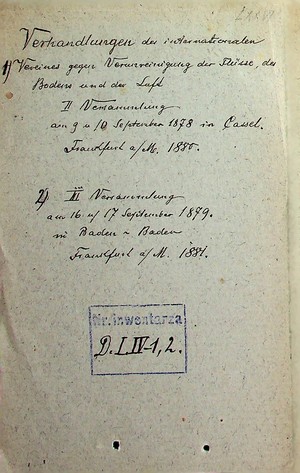 Verhandlungen der internationalen
1) Vereines gegen Verunreinigung der Flüsse, des
Bodens und der Luft
II Versammlung
am 9 u/10 September 1878 in Cassel.
Frankfurt a/M. 1880.
2) III Versammlung
am 16 u/17 September 1879.
in Baden-Baden
Frankfurt a/M. 1881.
Nr. inwentarza
D. I. IV-1, 2.